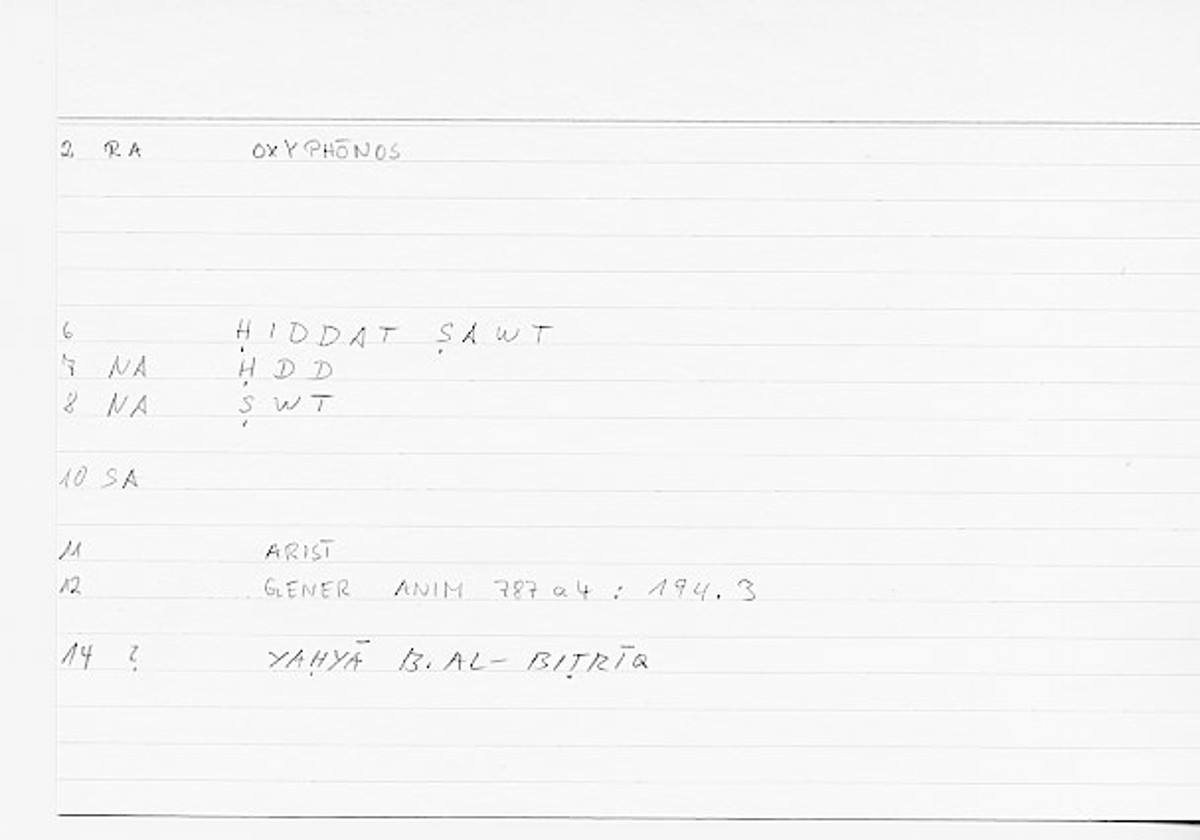 2 RA OXYPHŌNOS
6 ḤIDDAT ṢAWT
7 NA ḤDD
8 NA ṢWT
10 SA
11 ARIST
12 GENER ANIM 787a4 : 194.3
14 ? YAḤYĀ B. AL-BIṬRĪQ